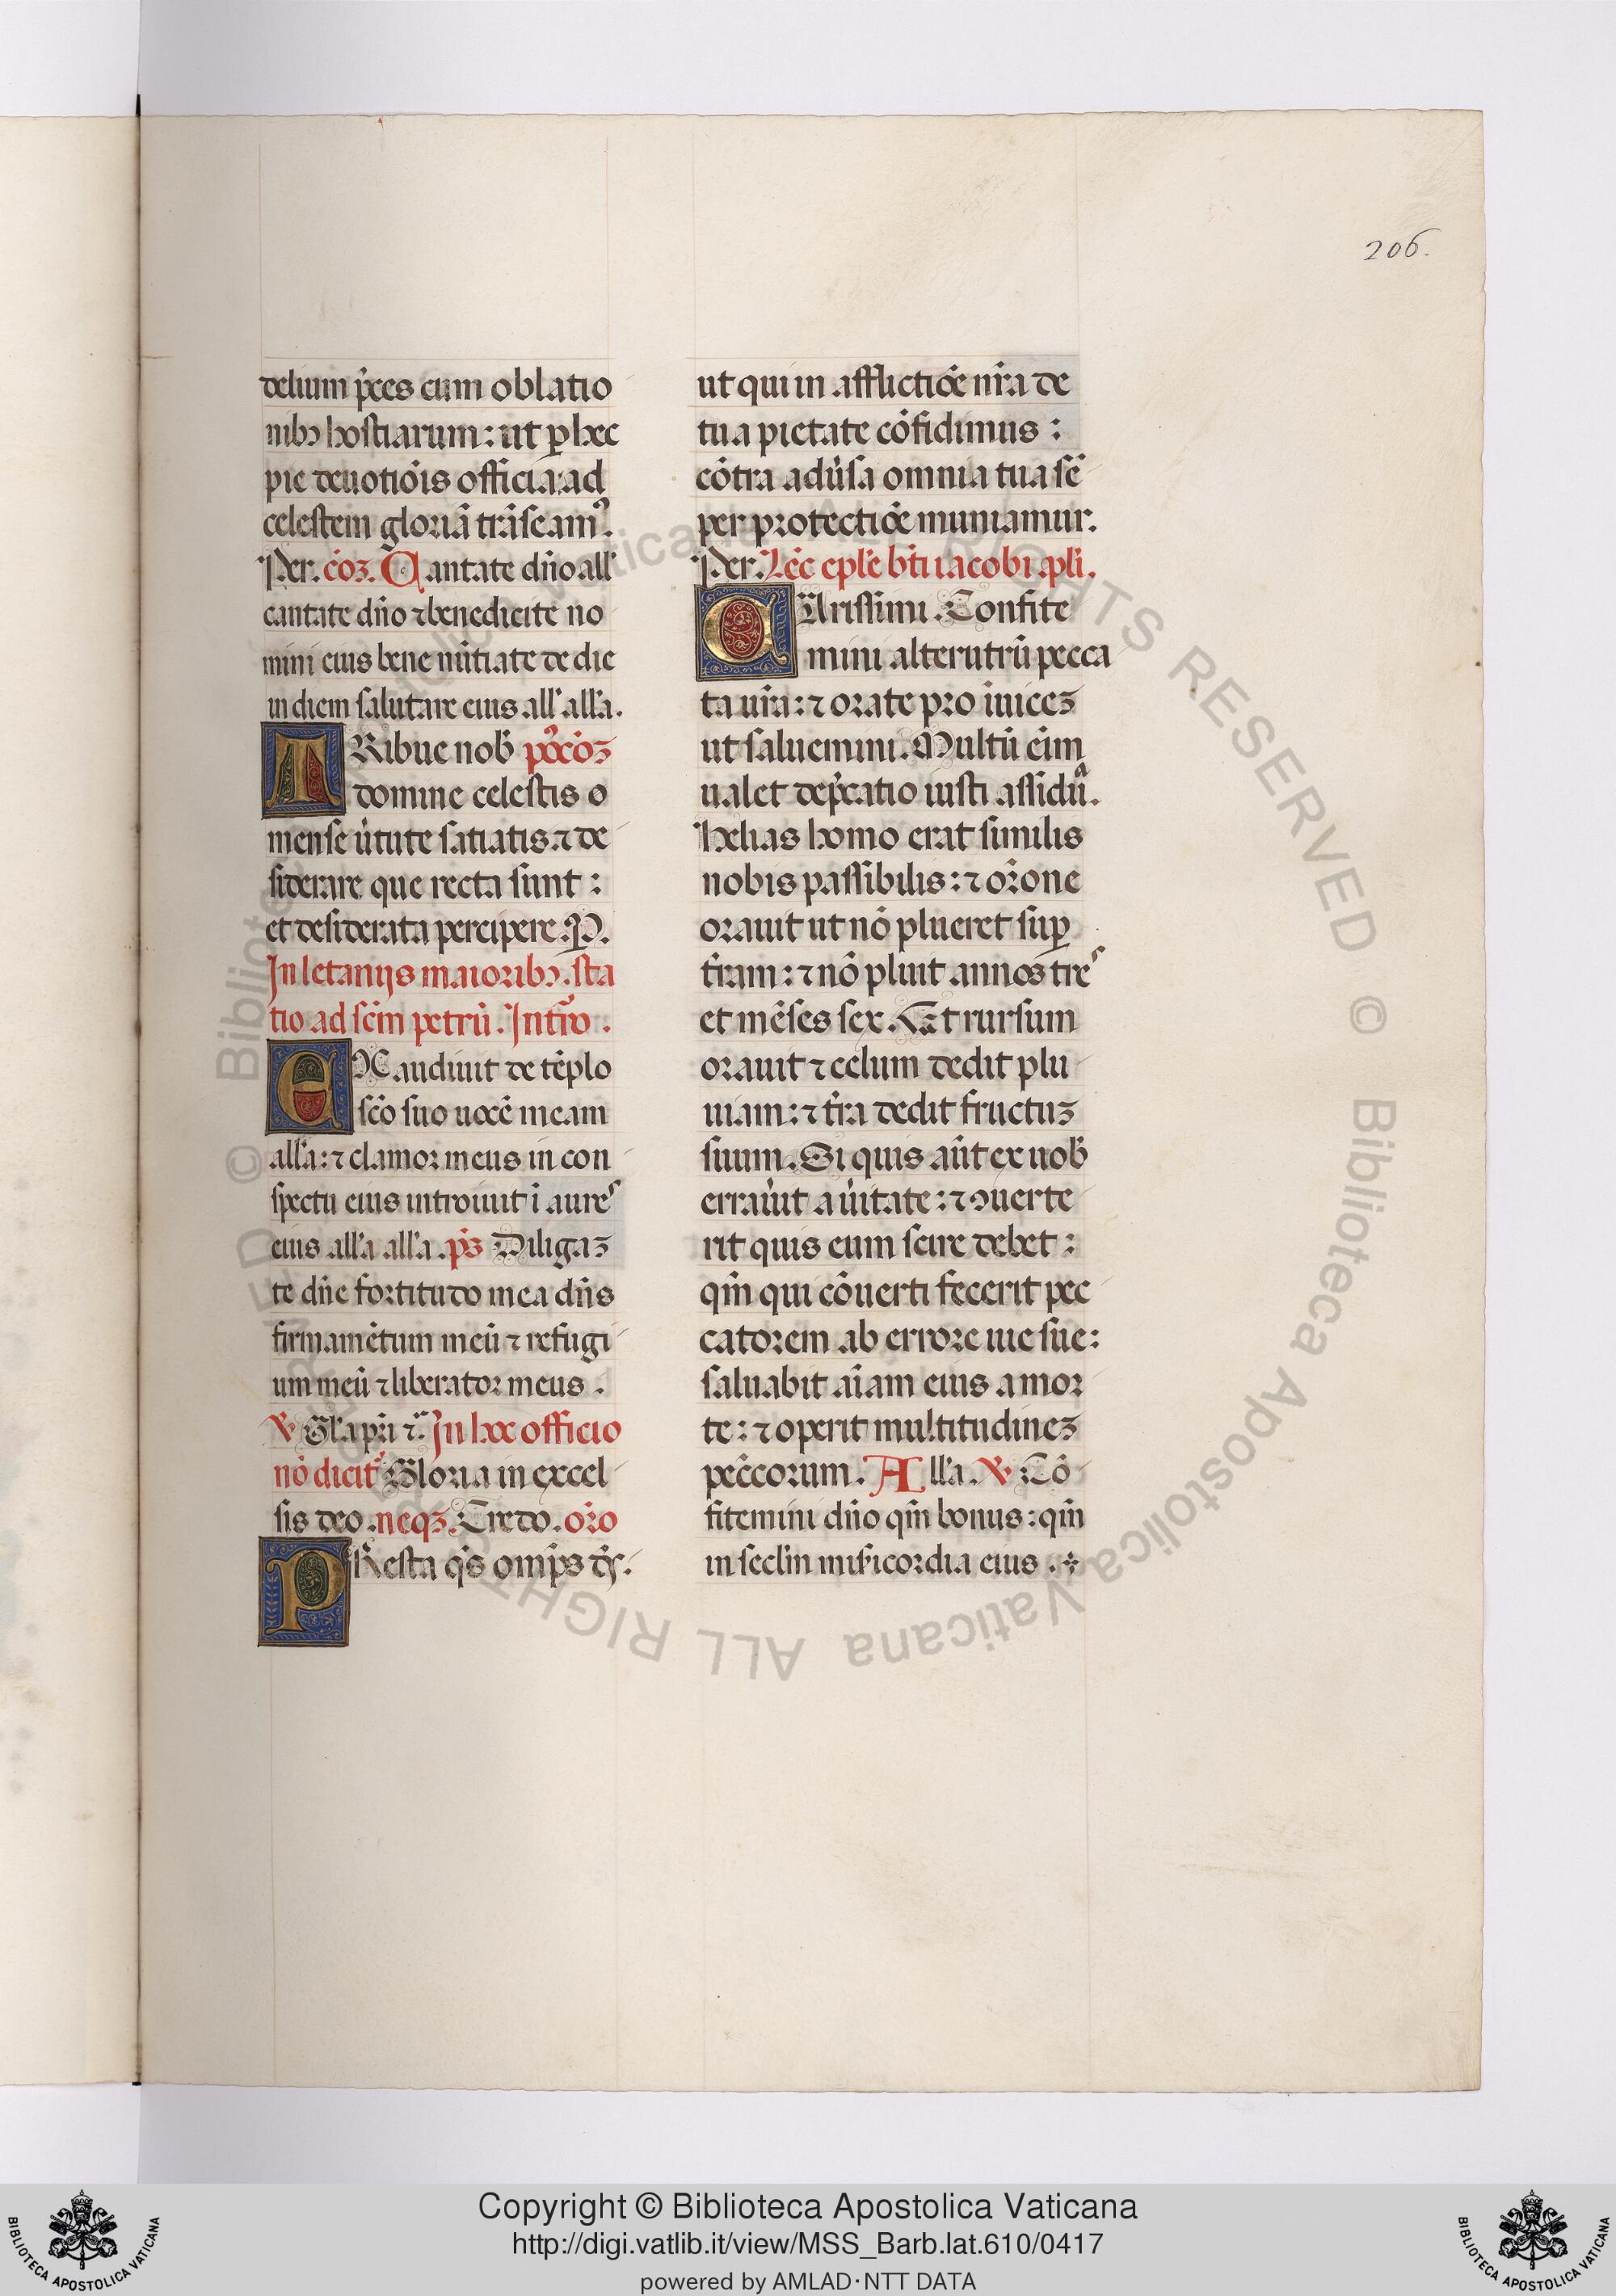 206.
delium p̃ces cum oblatio
nibꝰ hostiarum: ut ꝑ hec
pie deuotiõis officia: ad
celestem gloriã trãseamꝰ.
Per. cõꝫ. Cantate dño all'
cantate dño ⁊ benedicite no
mini eius bene nũtiate de die
in diem salutare eius all' all'a.
TRibue nob̃ pꝰcõꝫ
domine celestis o
mense ũtute satiatis. ⁊ de
siderare que recta sunt:
et desiderata percipere. P.
In letanijs maioribꝰ. sta
tio ad sc̃m petrũ. Introꝰ.
EXaudiuit de tẽplo
sc̃o suo uocẽ meam
all'a: ⁊ clamor meus in con
spectu eius introiuit ĩ aures
eius all'a all'a. p̃s Diligaꝫ
te dñe fortitudo mea dñs
firmamẽtum meũ ⁊ refugi
um meũ ⁊ liberator meus.
℣ Gl'a pr̃i ⁊c̃. In hoc officio
nõ dicit' Gloria in excel
sis deo. neqꝫ Credo. or̃o
PResta q̃s omp̃s d̃s.
ut qui in afflictiõe nr̃a de
tua pietate cõfidimus:
cõtra adũsa omnia tua sẽ
per protectiõe muniamur.
Per. Lec̃ epl'e bt̃i iacobi apl'i.
CArissimi. Confite
mini alterutrũ pecca
ta ur̃a: ⁊ orate pro inuiceꝫ
ut saluemini. Multũ eĩm
ualet dep̃catio iusti assiduᵃ.
Helias homo erat similis
nobis passibilis: ⁊ or̃one
orauit ut nõ plueret suꝑ
tr̃am: ⁊ nõ pluit annos tres
et mẽses sex. Et rursum
orauit ⁊ celum dedit plu
uiam: ⁊ tr̃a dedit fructuꝫ
suum. Si quis aũt ex uob̃
errauĩt a ũitate: ⁊ ꝯuerte
rit quis eum scire debet:
qm̃ qui cõuerti fecerit pec
catorem ab errore uie sue:
saluabit aĩam eius a mor
te: ⁊ operit multitudineꝫ
pec̃corum. All'a. ℣ Cõ
fitemini dño qm̃ bonus: qm̃
in secl'm mis̃icordia eius.
Copyright © Biblioteca Apostolica Vaticana
http://digi.vatlib.it/view/MSS_Barb.lat.610/0417
powered by AMLAD·NTT DATA
BIBLIOTECA APOSTOLICA VATICANA
BIBLIOTECA APOSTOLICA VATICANA
© Biblioteca Apostolica Vaticana ALL RIGHTS RESERVED © Biblioteca Apostolica Vaticana ALL RIGHTS RESERVED